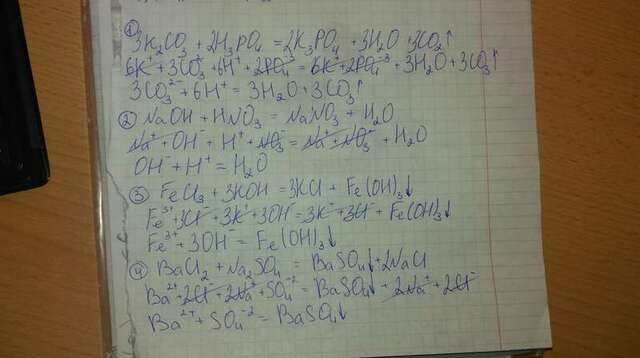 ①
3K₂CO₃ + 2H₃PO₄ = 2K₃PO₄ + 3H₂O + 3CO₂↑
6K⁺ + 3CO₃²⁻ + 6H⁺ + 2PO₄⁻³ = 6K⁺ + 2PO₄⁻³ + 3H₂O + 3CO₂↑
3CO₃²⁻ + 6H⁺ = 3H₂O + 3CO₂↑
② NaOH + HNO₃ = NaNO₃ + H₂O
Na⁺ + OH⁻ + H⁺ + NO₃⁻ = Na⁺ + NO₃⁻ + H₂O
OH⁻ + H⁺ = H₂O
③ FeCl₃ + 3KOH = 3KCl + Fe(OH)₃↓
Fe³⁺ + 3Cl⁻ + 3K⁺ + 3OH⁻ = 3K⁺ + 3Cl⁻ + Fe(OH)₃↓
Fe³⁺ + 3OH⁻ = Fe(OH)₃↓
④ BaCl₂ + Na₂SO₄ = BaSO₄↓ + 2NaCl
Ba²⁺ + 2Cl⁻ + 2Na⁺ + SO₄⁻² = BaSO₄↓ + 2Na⁺ + 2Cl⁻
Ba²⁺ + SO₄⁻² = BaSO₄↓